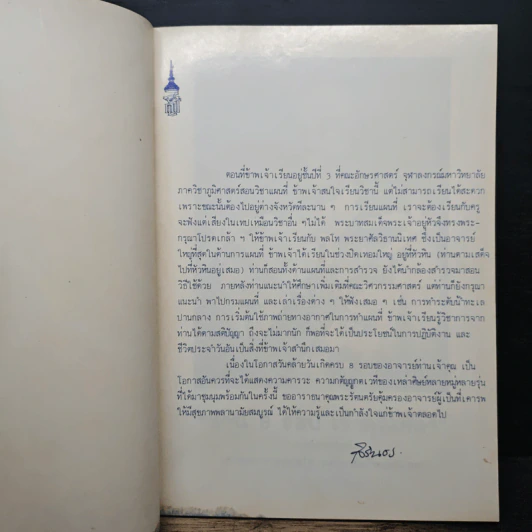 ตอนที่ข้าพเจ้าเรียนอยู่ชั้นปีที่ 3 ที่คณะอักษรศาสตร์ จุฬาลงกรณ์มหาวิทยาลัย
ภาควิชาภูมิศาสตร์สอนวิชาแผนที่ ข้าพเจ้าสนใจเรียนวิชานี้ แต่ไม่สามารถเรียนได้สะดวก
เพราะขณะนั้นต้องไปอยู่ต่างจังหวัดทีละนาน ๆ การเรียนแผนที่ เราจะต้องเรียนกับครู
จะฟังแต่เสียงในเทปเหมือนวิชาอื่น ๆไม่ได้ พระบาทสมเด็จพระเจ้าอยู่หัวจึงทรงพระ-
กรุณาโปรดเกล้า ฯ ให้ข้าพเจ้าเรียนกับ พลโท พระยาศัลวิธานนิเทศ ซึ่งเป็นอาจารย์
ใหญ่ที่สุดในด้านการแผนที่ ข้าพเจ้าได้เรียนในช่วงปิดเทอมใหญ่ อยู่ที่หัวหิน (ท่านตามเสด็จ
ไปที่หัวหินอยู่เสมอ) ท่านก็สอนทั้งด้านแผนที่และการสำรวจ ยังได้นำกล้องสำรวจมาสอน
วิธีใช้ด้วย ภายหลังท่านแนะนำให้ศึกษาเพิ่มเติมที่คณะวิศวกรรมศาสตร์ แต่ท่านก็ยังกรุณา
แนะนำ พาไปกรมแผนที่ และเล่าเรื่องต่าง ๆ ให้ฟังเสมอ ๆ เช่น การทำระดับน้ำทะเล
ปานกลาง การเริ่มต้นใช้ภาพถ่ายทางอากาศในการทำแผนที่ ข้าพเจ้าเรียนรู้วิชาการจาก
ท่านได้ตามสติปัญญา ถึงจะไม่มากนัก ก็พอที่จะได้เป็นประโยชน์ในการปฏิบัติงาน และ
ชีวิตประจำวันอันเป็นสิ่งที่ข้าพเจ้าสำนึกเสมอมา
เนื่องในโอกาสวันคล้ายวันเกิดครบ 8 รอบของอาจารย์ท่านเจ้าคุณ เป็น
โอกาสอันควรที่จะได้แสดงความคารวะ ความกตัญญูกตเวทีของเหล่าศิษย์หลายหมู่หลายรุ่น
ที่ได้มาชุมนุมพร้อมกันในครั้งนี้ ขออาราธนาคุณพระรัตนตรัยคุ้มครองอาจารย์ผู้เป็นที่เคารพ
ให้มีสุขภาพพลานามัยสมบูรณ์ ได้ให้ความรู้และเป็นกำลังใจแก่ข้าพเจ้าตลอดไป
สิรินธร